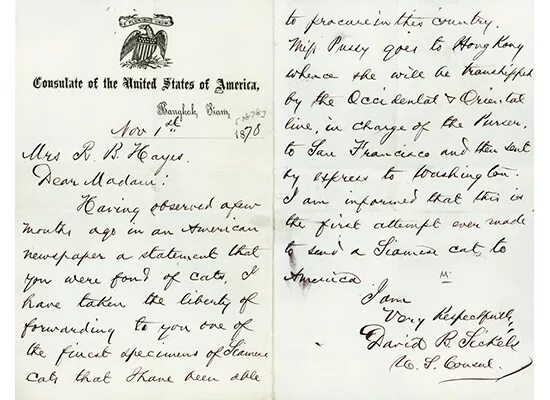 E PLURIBUS UNUM
Consulate of the United States of America,
Bangkok, Siam,
Nov 1st 1878
[1878]
Mrs R. B. Hayes.
Dear Madam:
Having observed a few
months ago in an American
newspaper a statement that
you were fond of cats, I
have taken the liberty of
forwarding to you one of
the finest specimens of Siamese
cats that I have been able
to procure in this country.
Miss Pussy goes to Hong Kong
whence she will be transhipped
by the Occidental & Oriental
line, in charge of the Purser,
to San Francisco and then sent
by express to Washington.
I am informed that this is
the first attempt ever made
to send a Siamese cat to
America.
I am
Very Respectfully,
David B. Sickels
U. S. Consul.